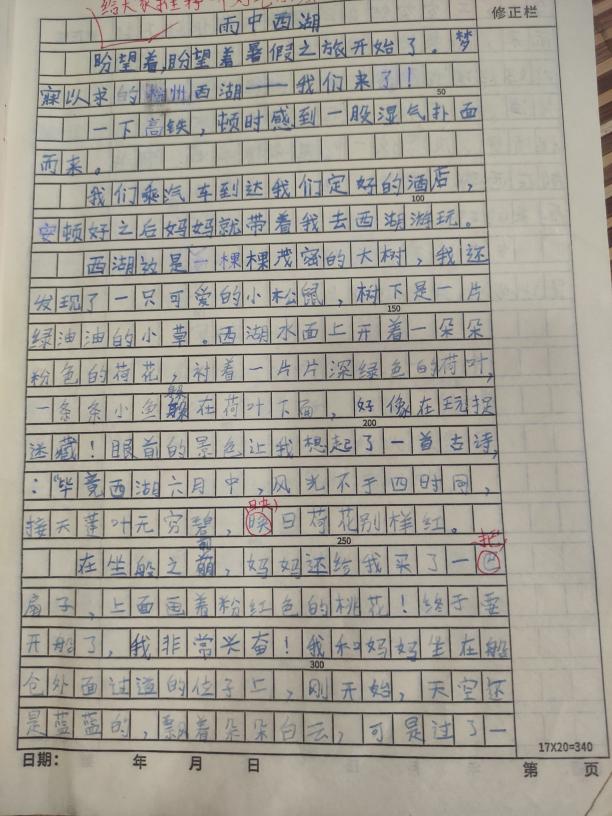 给大家推荐一个
修正栏
雨中西湖
盼望着,盼望着暑假之旅开始了。梦
寐以求的杭州西湖——我们来了!
50
一下高铁,顿时感到一股湿气扑面
而来。
我们乘汽车到达我们定好的酒店,
100
安顿好之后妈妈就带着我去西湖游玩。
西湖边是一棵棵茂密的大树,我还
发现了一只可爱的小松鼠,树下是一片
150
绿油油的小草。西湖水面上开着一朵朵
粉色的荷花,衬着一片片深绿色的荷叶,
一条条小鱼躲在荷叶下面,好像在玩捉
200
迷藏!眼前的景色让我想起了一首古诗,
:“毕竟西湖六月中,风光不于四时同,
接天莲叶无穷碧,映日荷花别样红。
250
在坐船之前,妈妈还给我买了一把
扇子,上面画着粉红色的桃花!终于要
开船了,我非常兴奋!我和妈妈坐在船
300
仓外面过道的位子上,刚开始,天空还
是蓝蓝的,飘着朵朵白云,可是过了一
17X20=340
日期: 年 月 日 第 页